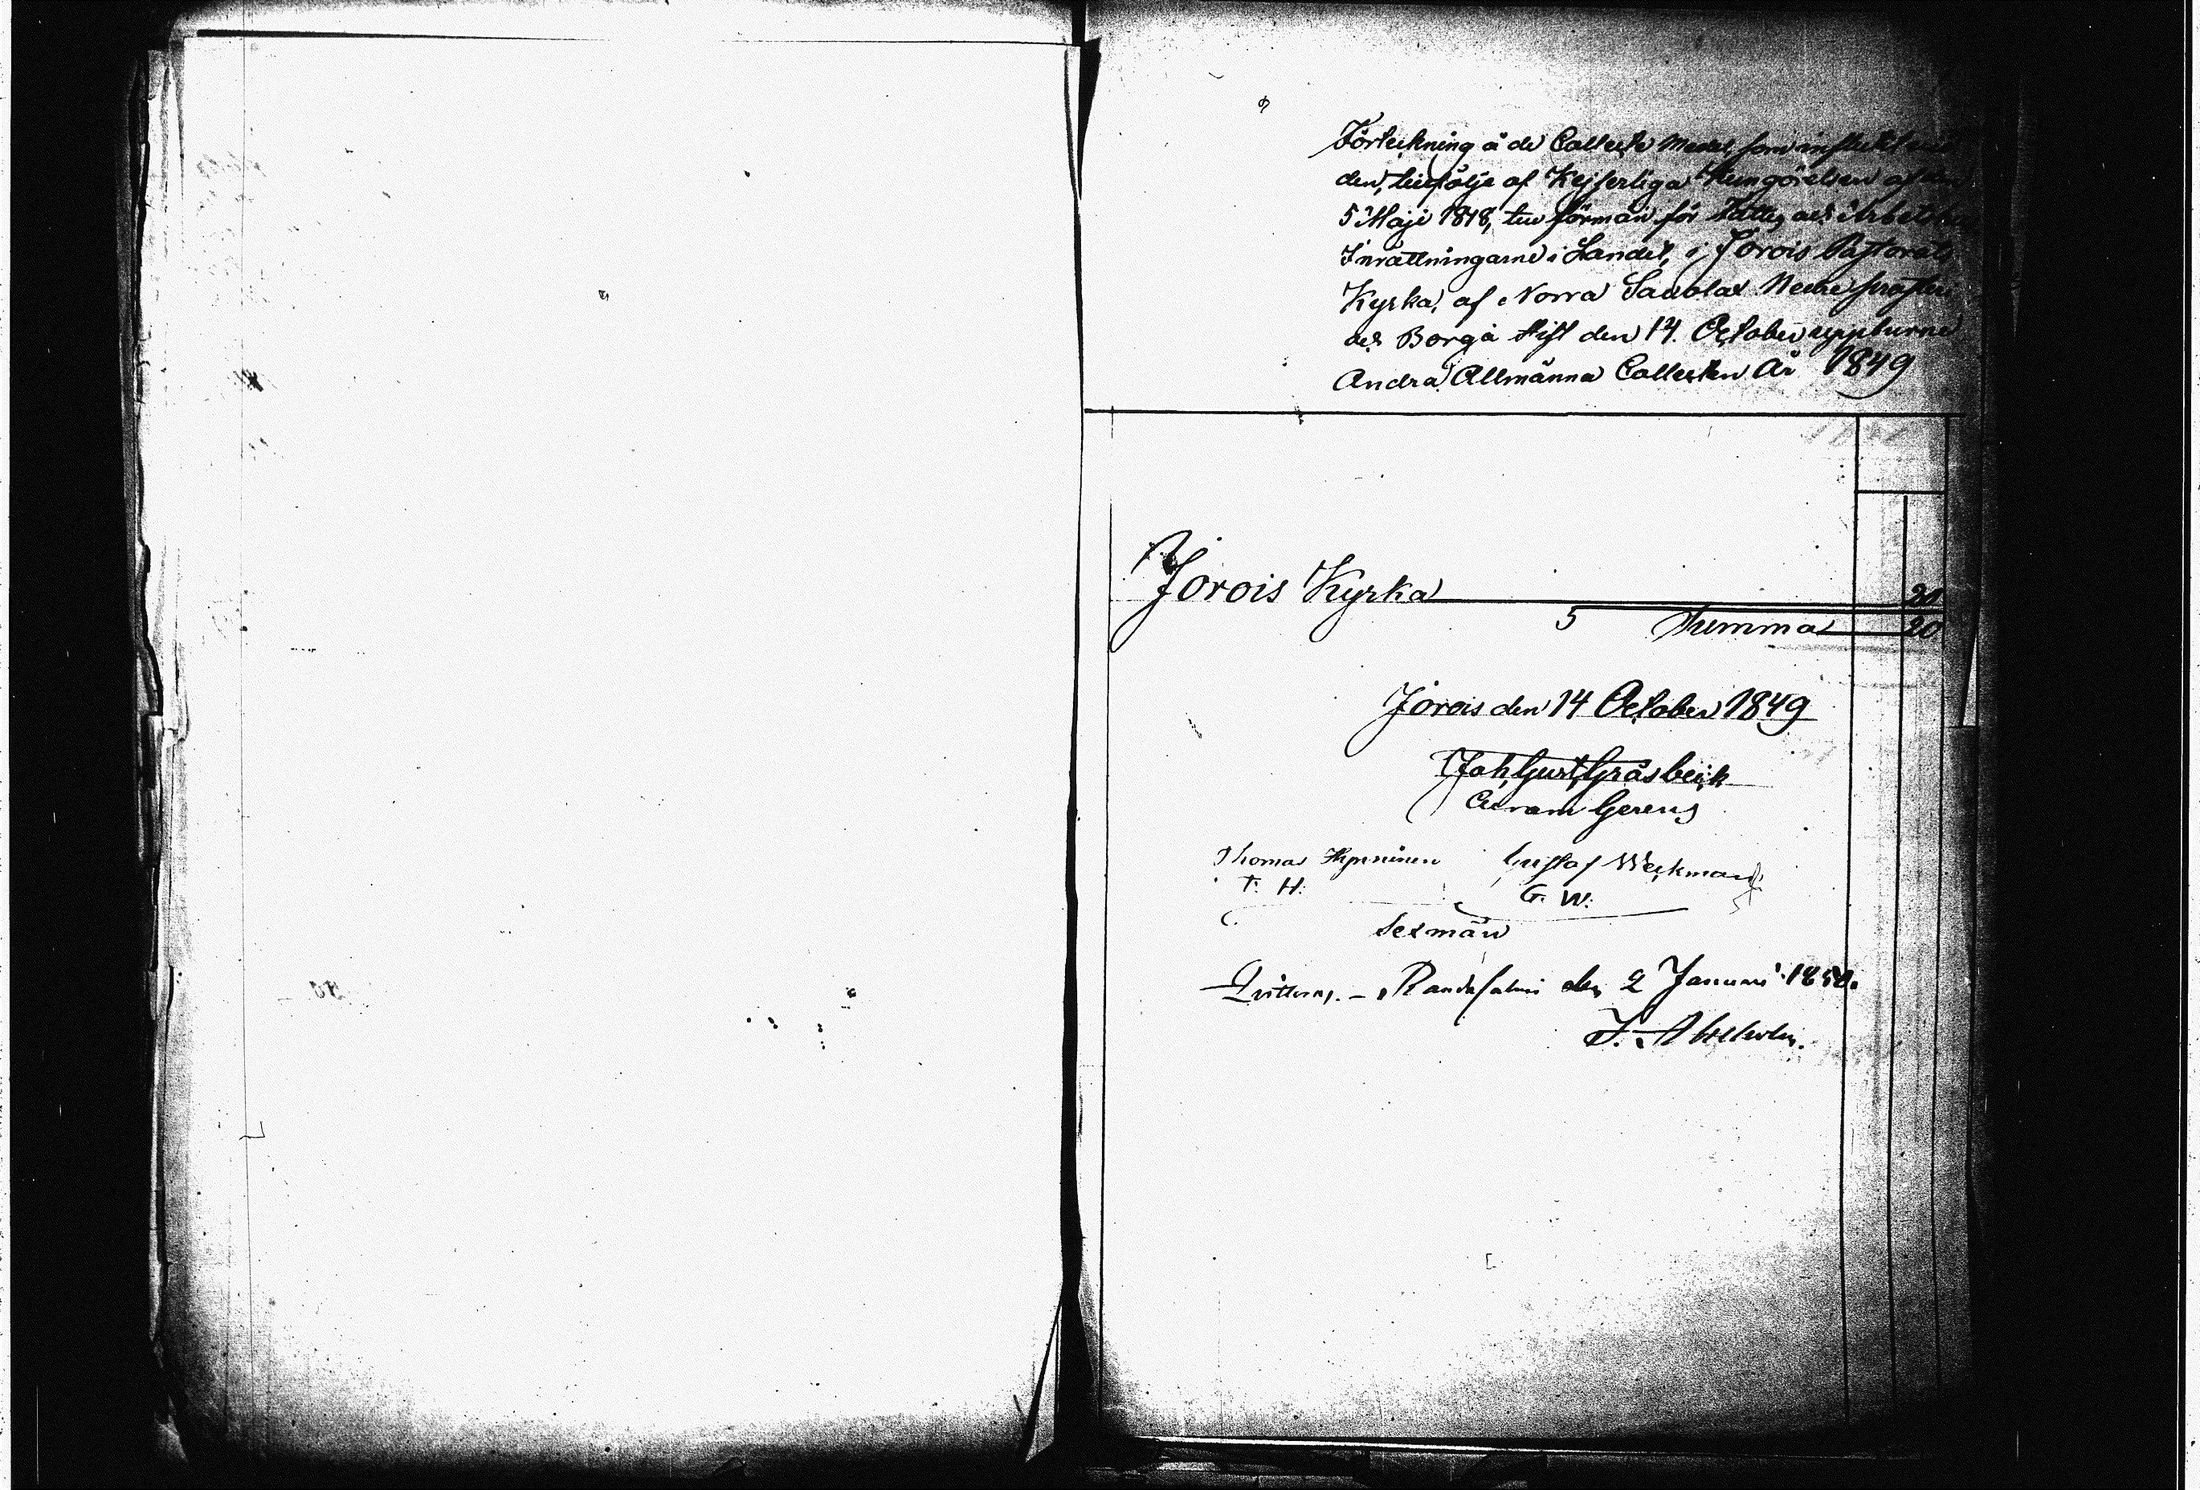 Förteckning å de Collecte Medel, som influtit vid
den, till följe af Kejserliga Kungörelsen af den
5 Maji 1848, till förmån för Fattig och Arbets
Inrättningarne i Landet, i Jorois Pastorats
Kyrka, af Norra Savolax Nedre prosteri
och Borgå Stift den 14. October uppburne
Andra Allmänna Collecten År 1849
Jorois Kyrka 20
S Summa 20
Jorois den 14 October 1849
Joh. Gust. Gråsbeck
Curam Gerens
Thomas Gustaf Weckman
T. H. G. W.
Sexmän
Qvitteras. - Randasalmi den 2 Januari 1850.